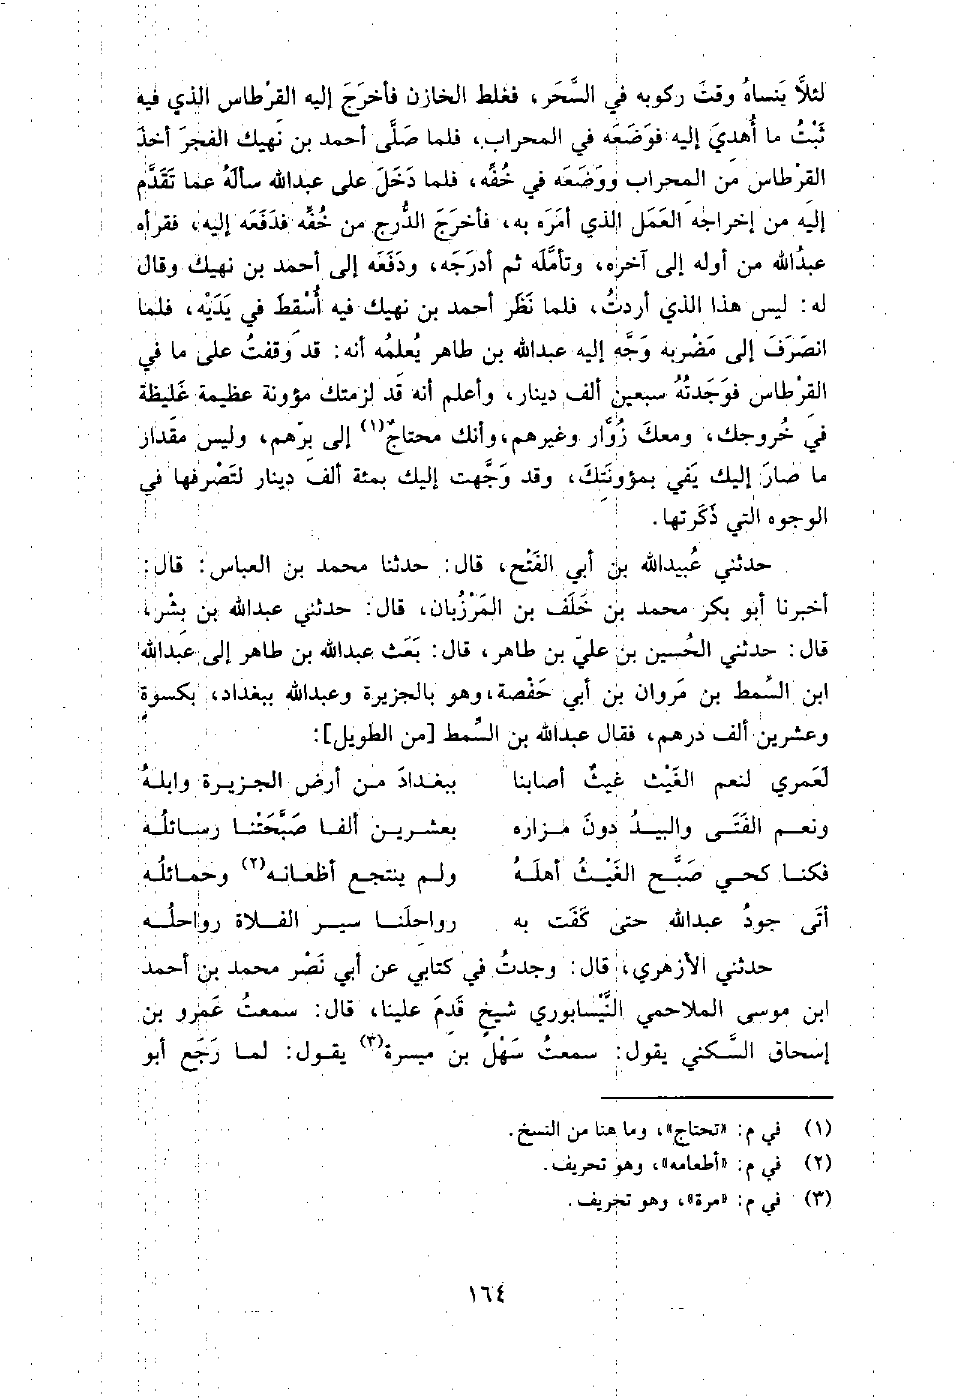 لئلاَّ يَنساهُ وقتَ ركوبه في السَّحَر، فغلط الخازن فأخرَجَ إليه القرْطاس الذي فيه
ثَبْتُ ما أُهديَ إليه فوَضَعَه في المحراب، فلما صَلَّى أحمد بن نَهيك الفجرَ أخذَ
القرْطاس من المحراب ووَضَعَه في خُفِّه، فلما دَخَلَ على عبدالله سألَهُ عما تَقَدَّم
إليه من إخراجه العَمَل الذي أمَرَه به، فأخرَجَ الدُّرج من خُفِّه فدَفَعَه إليه، فقرأه
عبدُالله من أوله إلى آخره، وتأمَّلَه ثم أدرَجَه، ودَفَعَه إلى أحمد بن نهيك وقال
له: ليس هذا الذي أردتُ، فلما نَظَر أحمد بن نهيك فيه أُسْقطَ في يَدَيْه، فلما
انصَرَفَ إلى مَضْربه وَجَّه إليه عبدالله بن طاهر يُعلمُه أنه: قد وَقفتُ على ما في
القرْطاس فوَجَدتُهُ سبعين ألف دينار، وأعلم أنه قَد لزمتكَ مؤونة عظيمة غَليظة
في خُروجك، ومعكَ زُوَّار وغيرهم، وأنك محتاجٌ(١) إلى برّهم، وليس مقدار
ما صارَ إليك يَفي بمؤونَتكَ، وقد وَجَّهت إليك بمئة ألف دينار لتَصْرفها في
الوجوه التي ذَكَرتها.
حدثني عُبيدالله بن أبي الفَتْح، قال: حدثنا محمد بن العباس: قال:
أخبرنا أبو بكر محمد بن خَلَف بن المَرْزُبان، قال: حدثني عبدالله بن بشْر،
قال: حدثني الحُسين بن عليّ بن طاهر، قال: بَعَث عبدالله بن طاهر إلى عبدالله
ابن السِّمط بن مَروان بن أبي حَفْصة، وهو بالجزيرة وعبدالله ببغداد، بكسوة
وعشرين ألف درهم، فقال عبدالله بن السِّمط [من الطويل]:
لَعَمري لنعم الغَيْث غيثٌ أصابنا ببغدادَ من أرض الجزيرة وابلهُ
ونعم الفَتَى والبيدُ دونَ مزاره بعشرين ألفا صَبَّحَتْنا رسائلُه
فكنا كحي صَبَّح الغَيْثُ أهلَهُ ولم ينتجع أظعانه(٢) وحمائلُه
أتَى جودُ عبدالله حتى كَفَت به رواحلَنا سير الفلاة رواحلُه
حدثني الأزهري، قال: وجدتُ في كتابي عن أبي نَصْر محمد بن أحمد
ابن موسى الملاحمي النَّيْسابوري شيخٍ قَدمَ علينا، قال: سمعتُ عَمرو بن
إسحاق السَّكني يقول: سمعتُ سَهْل بن ميسرة(٣) يقول: لما رَجَع أبو
(١) في م: «تحتاج»، وما هنا من النسخ.
(٢) في م: «أطعامه»، وهو تحريف.
(٣) في م: «مرة»، وهو تحريف.
١٦٤